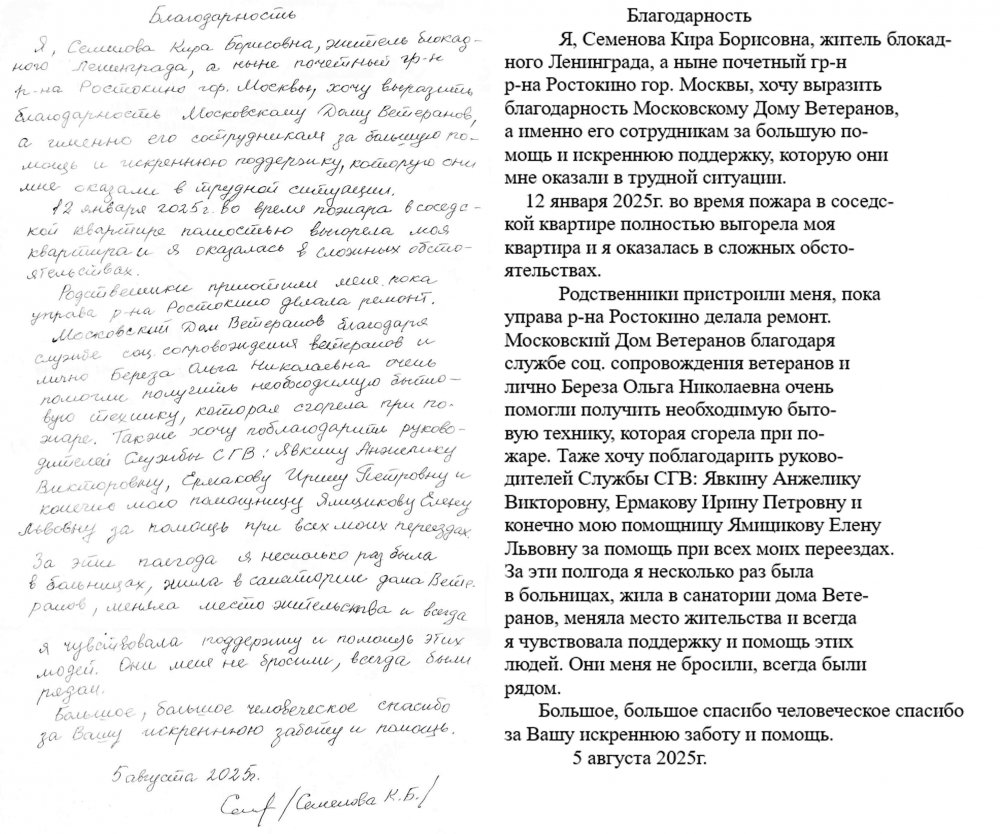 Благодарность
Я, Семенова Кира Борисовна, житель блокад-
ного Ленинграда, а ныне почетный гр-н
р-на Ростокино гор. Москвы, хочу выразить
благодарность Московскому Дому Ветеранов,
а именно его сотрудникам за большую по-
мощь и искреннюю поддержку, которую они
мне оказали в трудной ситуации.
12 января 2025г. во время пожара в сосед-
кой квартире полностью выгорела моя
квартира и я оказалась в сложных обсто-
ятельствах.
Родственники приютили меня, пока
управа р-на Ростокино делала ремонт.
Московский Дом Ветеранов благодаря
службе соц. сопровождения ветеранов и
лично Береза Ольга Николаевна очень
помогли получить необходимую быто-
вую технику, которая сгорела при по-
жаре. Также хочу поблагодарить руково-
дителей Службы СГВ: Явкину Анжелику
Викторовну, Ермакову Ирину Петровну и
конечно мою помощницу Ямщикову Елену
Львовну за помощь при всех моих переездах.
За эти полгода я несколько раз была
в больницах, жила в санатории дома Вете-
ранов, меняла место жительства и всегда
я чувствовала поддержку и помощь этих
людей. Они меня не бросили, всегда были
рядом.
Большое, большое человеческое спасибо
за Вашу искреннюю заботу и помощь.
5 августа 2025г.
/Семенова К.Б./
Благодарность
Я, Семенова Кира Борисовна, житель блокад-
ного Ленинграда, а ныне почетный гр-н
р-на Ростокино гор. Москвы, хочу выразить
благодарность Московскому Дому Ветеранов,
а именно его сотрудникам за большую по-
мощь и искреннюю поддержку, которую они
мне оказали в трудной ситуации.
12 января 2025г. во время пожара в соседс-
кой квартире полностью выгорела моя
квартира и я оказалась в сложных обсто-
ятельствах.
Родственники пристроили меня, пока
управа р-на Ростокино делала ремонт.
Московский Дом Ветеранов благодаря
службе соц. сопровождения ветеранов и
лично Береза Ольга Николаевна очень
помогли получить необходимую быто-
вую технику, которая сгорела при по-
жаре. Таже хочу поблагодарить руково-
дителей Службы СГВ: Явкину Анжелику
Викторовну, Ермакову Ирину Петровну и
конечно мою помощницу Ямицикову Елену
Львовну за помощь при всех моих переездах.
За эти полгода я несколько раз была
в больницах, жила в санатории дома Вете-
ранов, меняла место жительства и всегда
я чувствовала поддержку и помощь этих
людей. Они меня не бросили, всегда были
рядом.
Большое, большое спасибо человеческое спасибо
за Вашу искреннюю заботу и помощь.
5 августа 2025г.